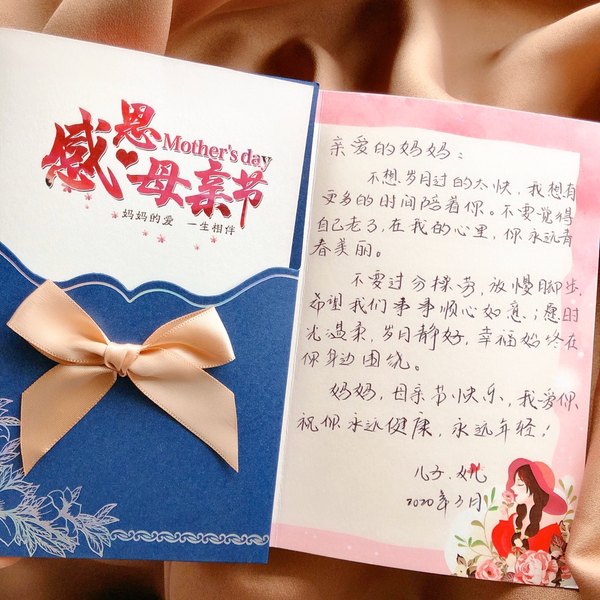 感恩
Mother's day
母亲节
妈妈的爱 一生相伴
亲爱的妈妈:
不想岁月过的太快,我想有
更多的时间陪着你。不要觉得
自己老了,在我的心里,你永远青
春美丽。
不要过分操劳,放慢脚步,
希望我们事事顺心如意;愿时
光温柔,岁月静好,幸福始终在
你身边围绕。
妈妈,母亲节快乐,我爱你
祝你永远健康,永远年轻!
儿子、女儿
2020年5月